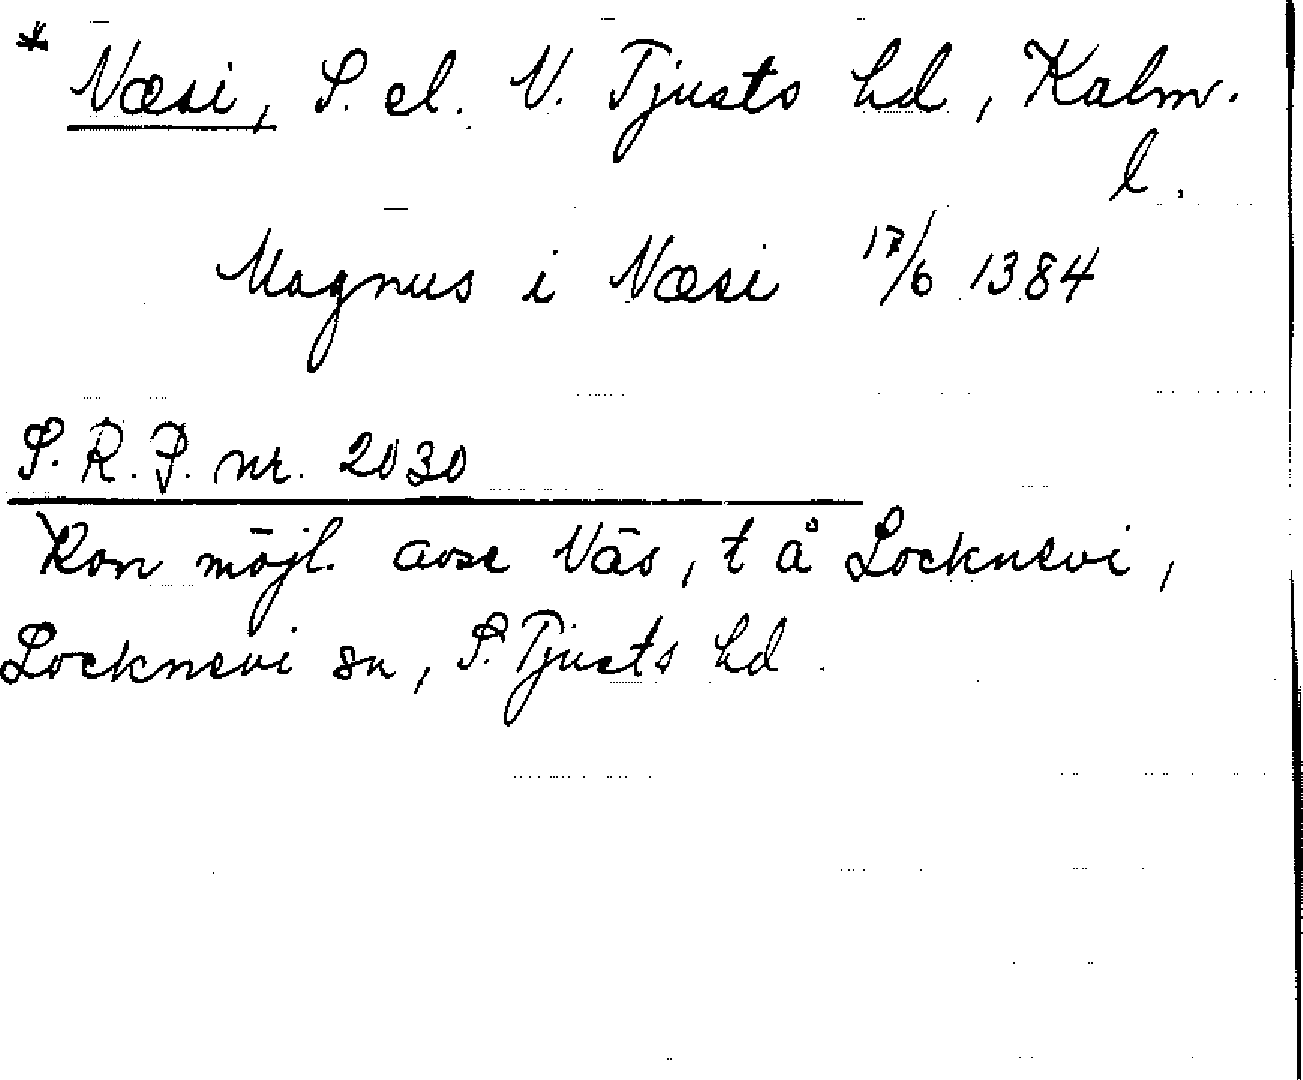 * Næsi, S. el. N. Tjusts hd, Kalm.
l.
Magnus i Næsi 17/6 1384
S. R. P. nr. 2030
Kan möjl. avse Näs, t å Locknevi,
Locknevi sn, S. Tjusts hd.